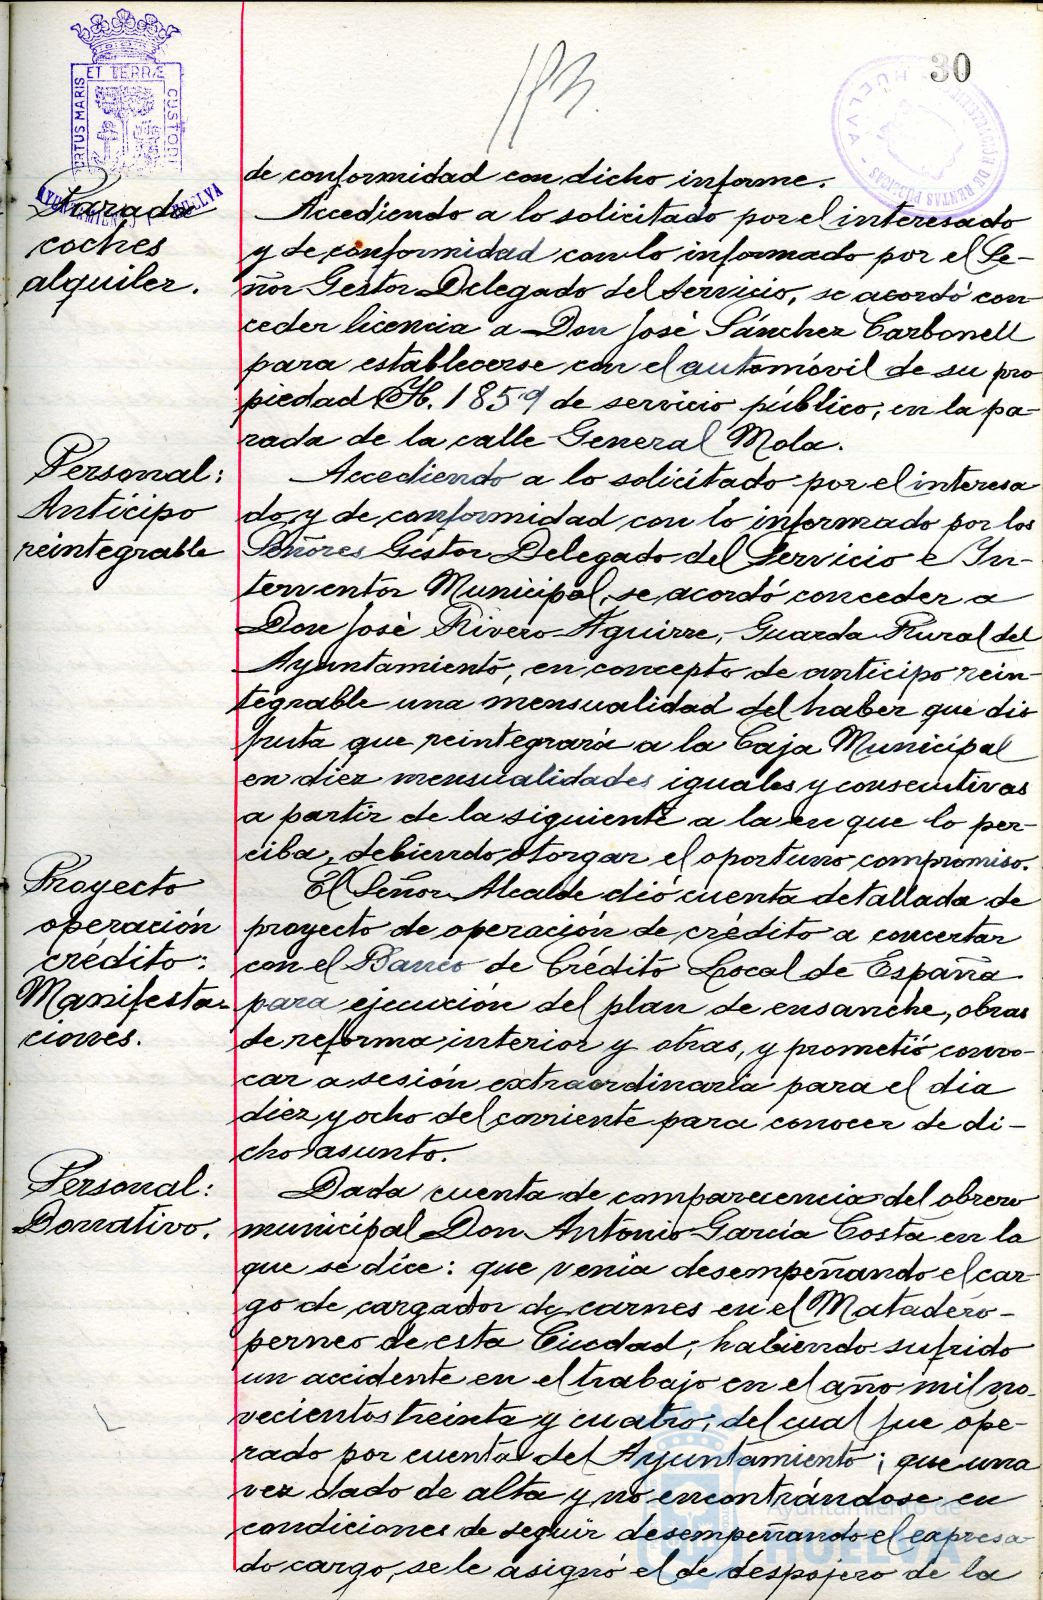 30
193.
PORTUS MARIS ET TERRÆ CUSTODIA
AYUNTAMIENTO HUELVA
DE RENTAS PUBLICAS - HUELVA
de conformidad con dicho informe.
Parada
coches
alquiler.
Accediendo a lo solicitado por el interesado
y de conformidad con lo informado por el Se-
ñor Gestor Delegado del Servicio, se acordó con-
ceder licencia a Don José Sánchez Carbonell
para establecerse con el automóvil de su pro
piedad H. 1859 de servicio público, en la pa-
rada de la calle General Mola.
Personal:
Anticipo
reintegrable
Accediendo a lo solicitado por el interesa
do, y de conformidad con lo informado por los
Señores Gestor Delegado del Servicio e In-
terventor Municipal, se acordó conceder a
Don José Rivero Aguirre, Guarda Rural del
Ayuntamiento, en concepto de anticipo rein-
tegrable una mensualidad del haber que dis
fruta que reintegrará a la Caja Municipal
en diez mensualidades iguales y consecutivas
a partir de la siguiente a la en que lo per-
ciba, debiendo otorgar el oportuno compromiso.
Proyecto
operación
crédito:
Manifesta-
ciones.
El Señor Alcalde dió cuenta detallada de
proyecto de operación de crédito a concertar
con el Banco de Crédito Local de España
para ejecución del plan de ensanche, obras
de reforma interior y otras, y prometió convo-
car a sesión extraordinaria para el dia
diez y ocho del corriente para conocer de di-
cho asunto.
Personal:
Donativo.
Dada cuenta de comparecencia del obrero
municipal Don Antonio García Costa en la
que se dice: que venia desempeñando el car-
go de cargador de carnes en el Matadero-
perneo de esta Ciudad, habiendo sufrido
un accidente en el trabajo en el año mil no-
vecientos treinta y cuatro, del cual fue ope-
rado por cuenta del Ayuntamiento; que una
vez dado de alta y no encontrándose en
condiciones de seguir desempeñando el expresa
do cargo, se le asignó el de despojero de la
Ayuntamiento de
HUELVA